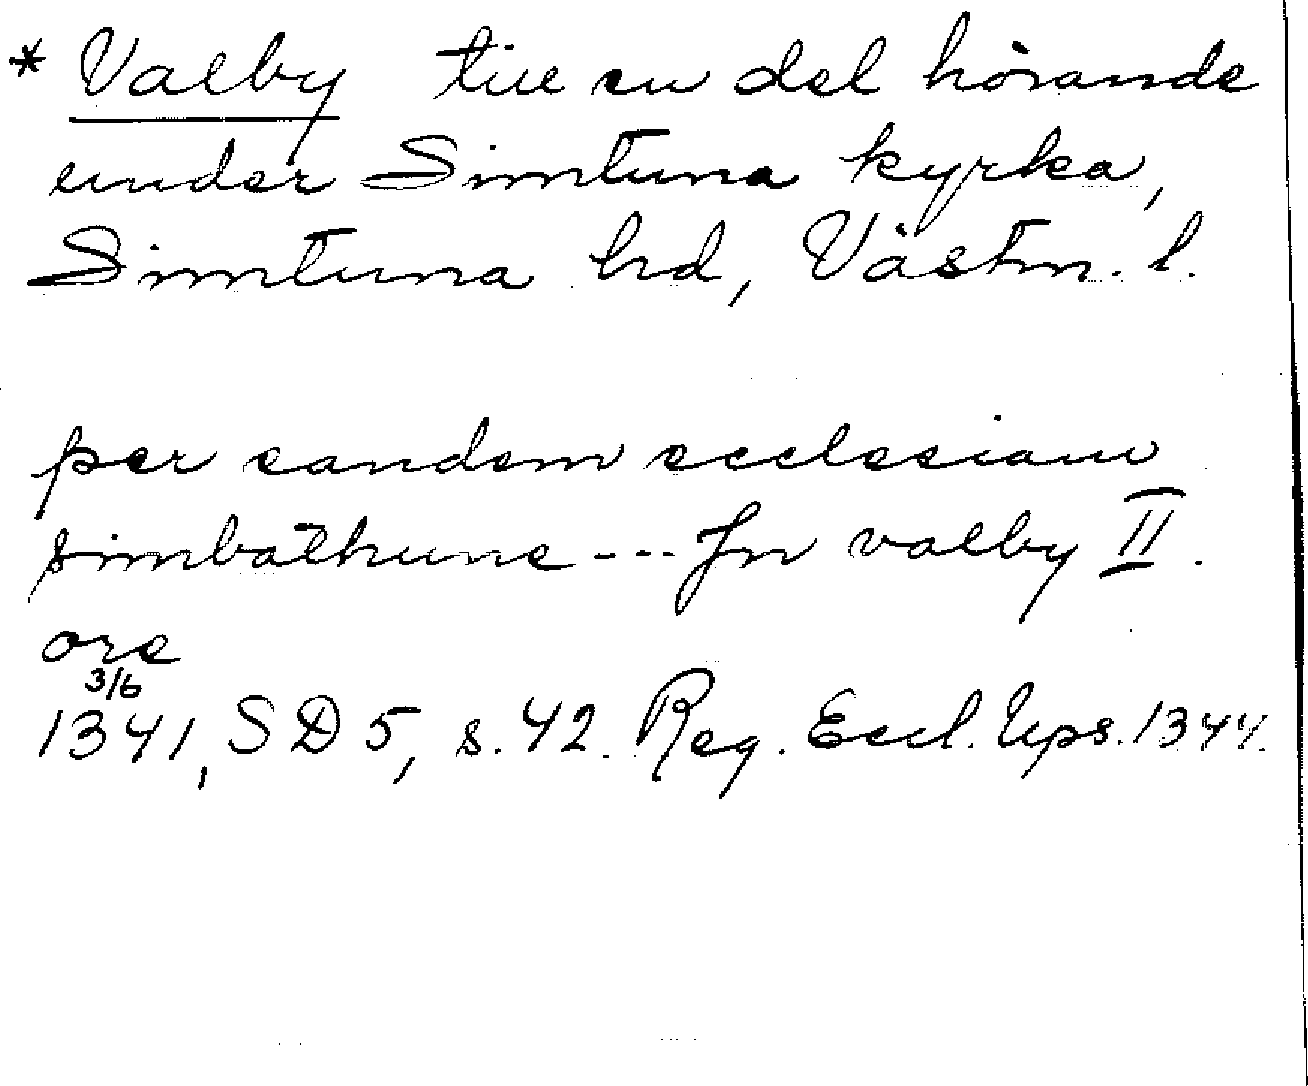 * Valby till en del hörande
under Simtuna kyrka,
Simtuna hd, Västm. l.
per eandem ecclesiam
simbathune --- Jn valby II.
ore
3/6
1341, SD 5, s. 42. Reg. Eccl. Ups. 1344.